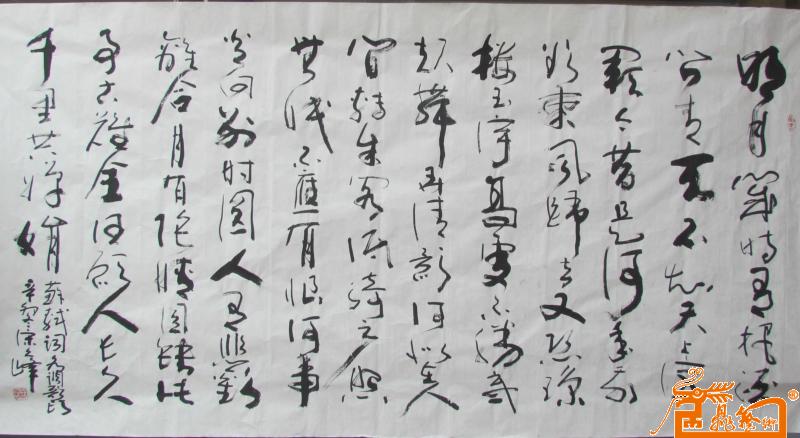 明月幾時有把酒
问青天不知天上宫
阙今昔是何年我
欲乘風歸去又恐瓊
楼玉宇高處不勝寒
起舞弄清影何似在人
间转朱阁低绮户照
無眠不應有恨何事
长向别时圆人有悲歡
離合月有阴晴圆缺此
事古難全但願人长久
千里共婵娟
蘇轼词水调歌头